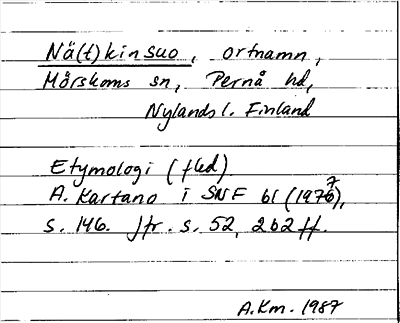 Nä(t)kinsuo, ortnamn,
Mörskoms sn, Pernå hd,
Nylands l. Finland
Etymologi (fled).
A. Kartano i SNF 61 (1977),
s. 146. Jfr. s. 52, 262 ff.
A.Km. 1987